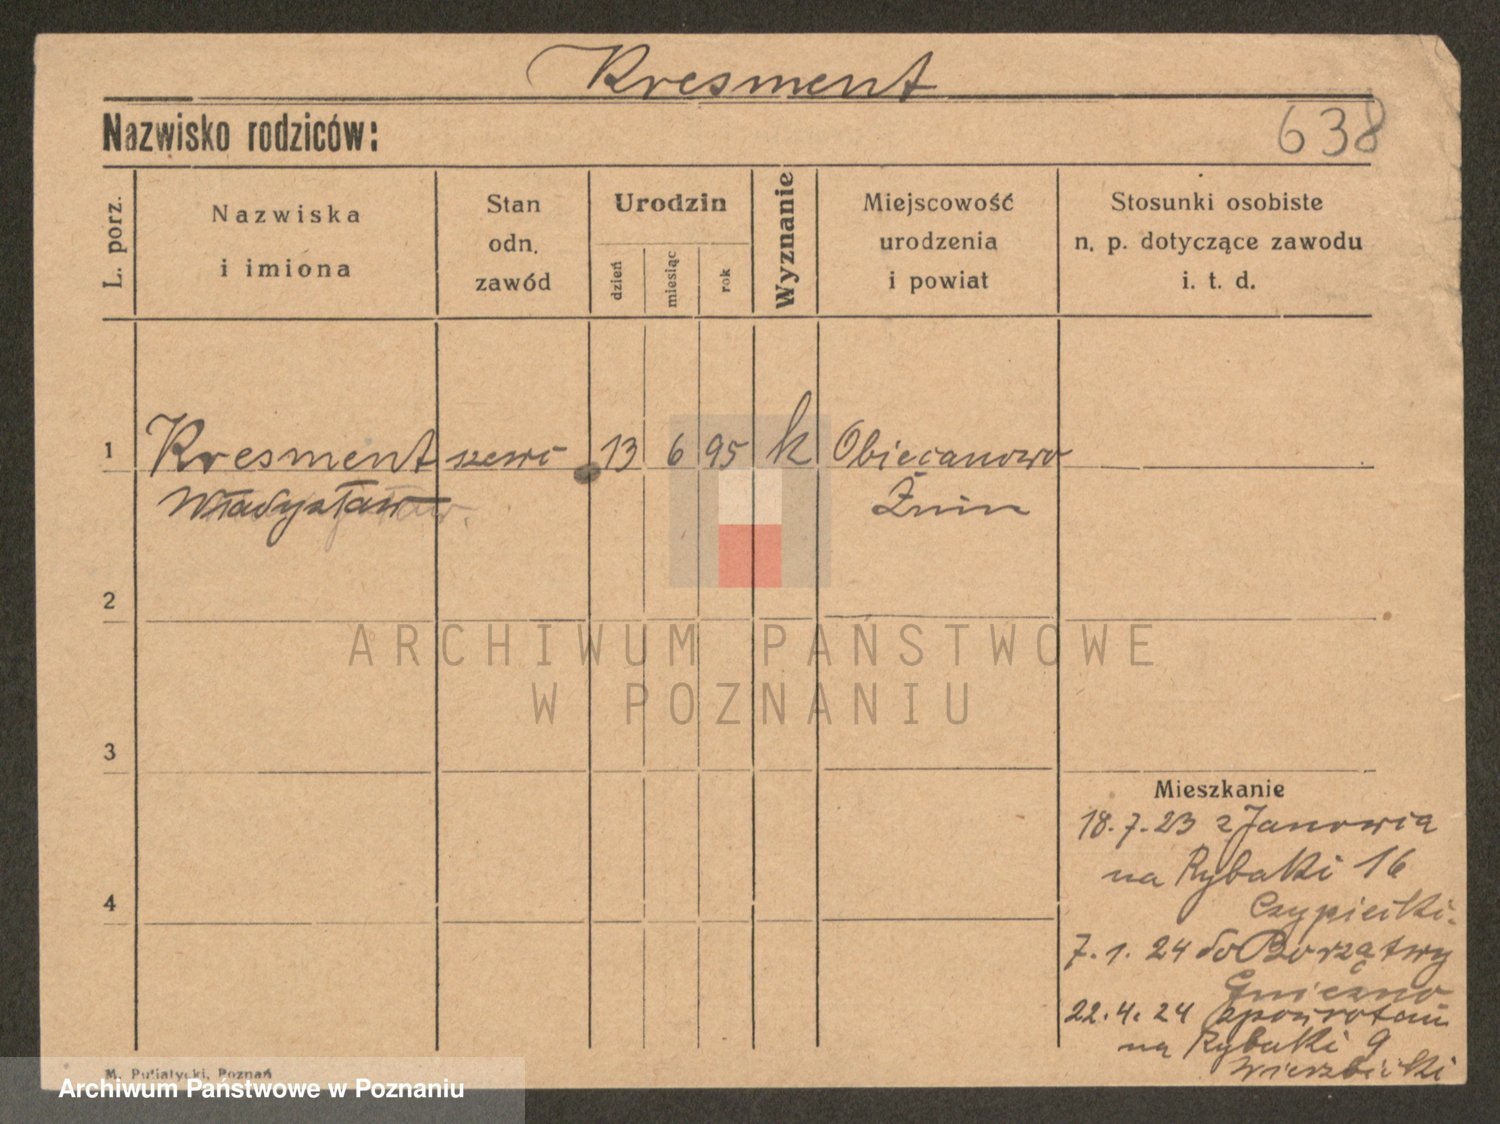 Kresment
Nazwisko rodziców:
638
L. porz.
Nazwiska
i imiona
Stan
odn.
zawód
Urodzin
dzień
miesiąc
rok
Wyznanie
Miejscowość
urodzenia
i powiat
Stosunki osobiste
n. p. dotyczące zawodu
i. t. d.
1
Kresment szewc 13 6 95 k Obiecanowo
Władysław Żnin
2
ARCHIWUM PAŃSTWOWE
W POZNANIU
3
Mieszkanie
18.7.23 z Janowca
na Rybaki 16
4
7.1.24 do Borzątwy
Gniezno
22.4.24 spowrotem
na Rybaki 9
Wierzbicki
M. Putiatycki, Poznań
Archiwum Państwowe w Poznaniu